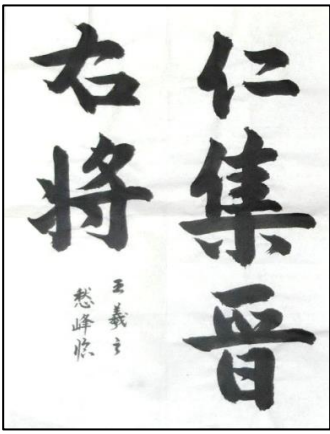 仁集晋
右将
王羲之
愁峰临